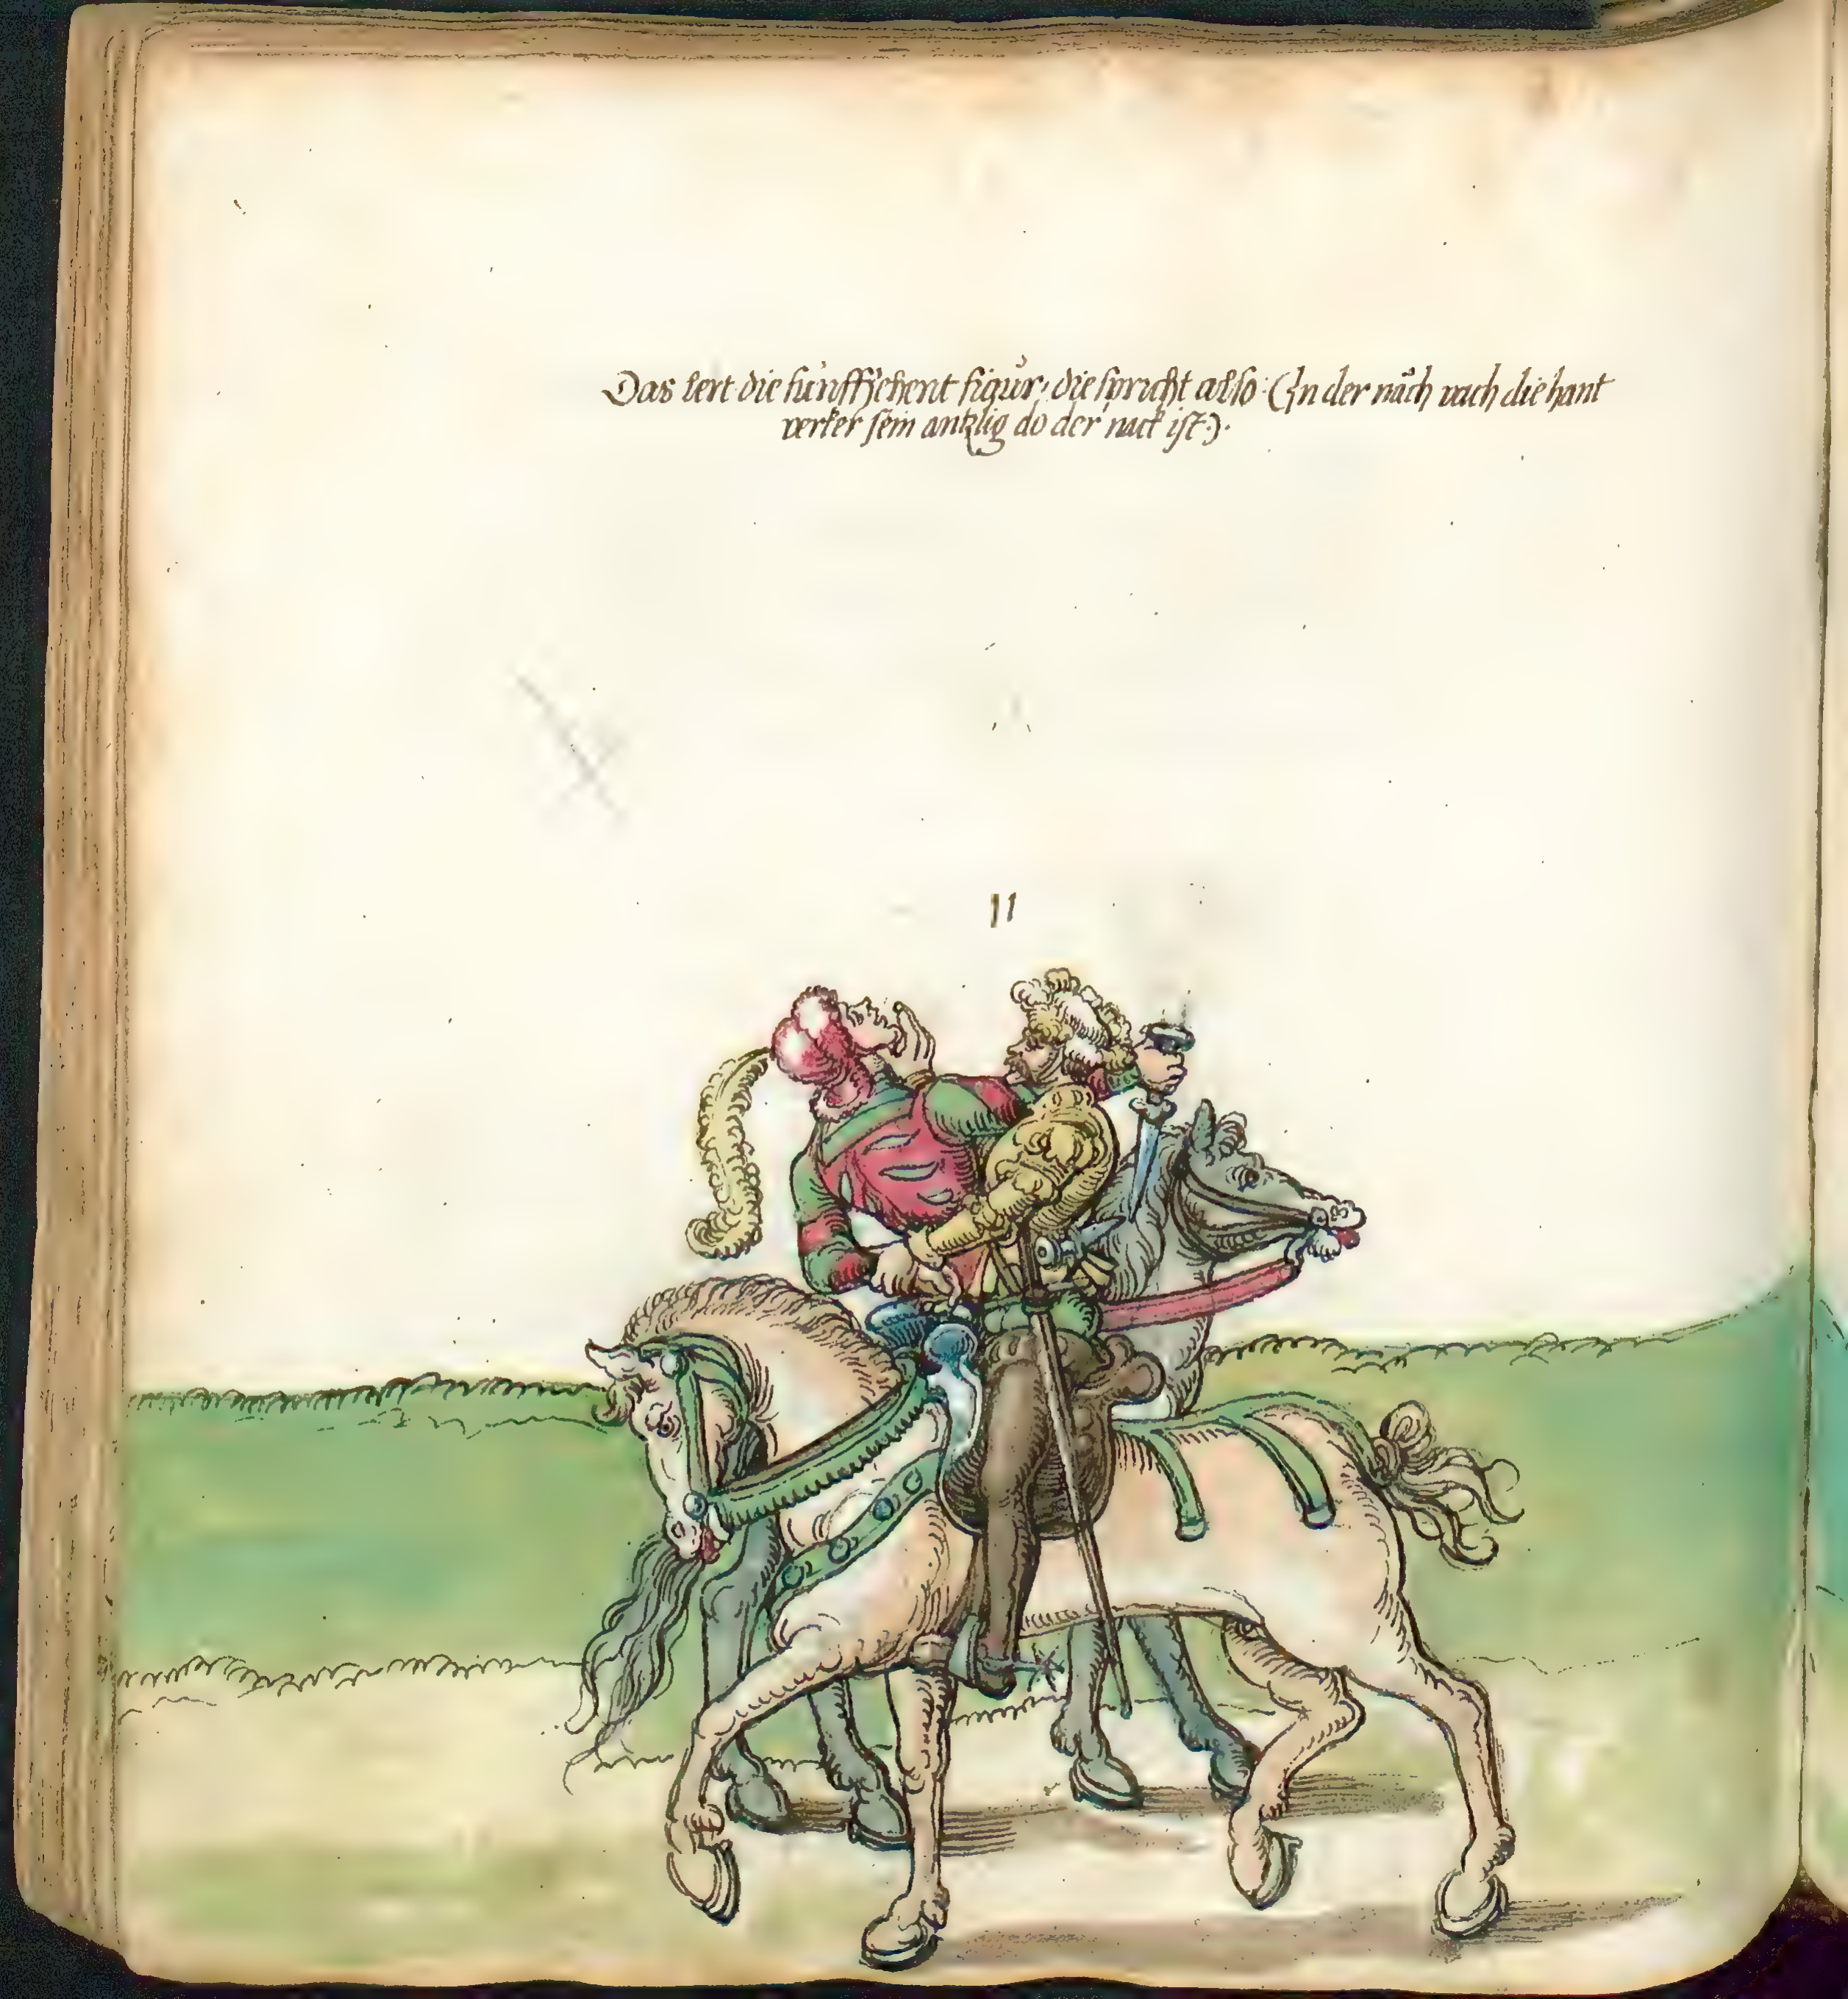 Das lert die funffzehent figur, die spricht also (In der näch vach die hant
verker sein antzlig do der nack ist).
11